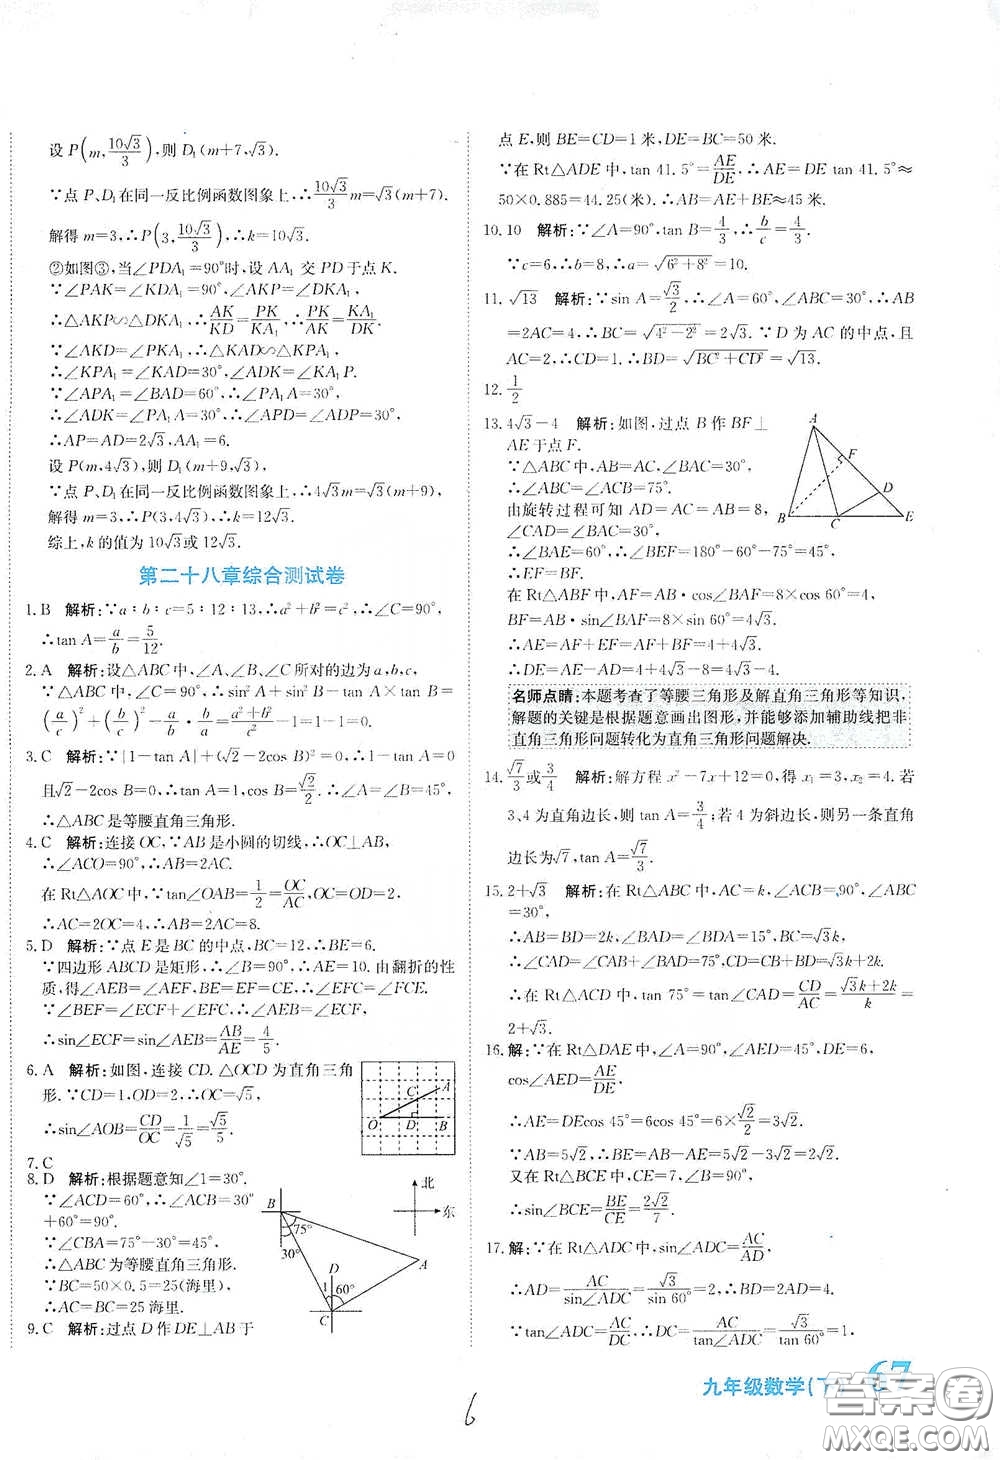 设 P(m, 10√3/3), 则 D₁(m+7, √3).
∵点 P、D₁ 在同一反比例函数图象上, ∴10√3/3 m=√3(m+7).
解得 m=3, ∴P(3, 10√3/3), ∴k=10√3.
②如图③, 当∠PDA₁=90°时, 设 AA₁ 交 PD 于点 K.
∵∠PAK=∠KDA₁=90°, ∠AKP=∠DKA₁,
∴△AKP∽△DKA₁, ∴AK/KD=PK/KA₁. ∴AK/PK=KA₁/DK.
∵∠AKD=∠PKA₁, ∴△KAD∽△KPA₁.
∴∠KPA₁=∠KAD=30°, ∠ADK=∠KA₁P.
∵∠APA₁=∠BAD=60°, ∠KPA₁=30°,
∴∠ADK=∠PA₁A=30°. ∴∠APD=∠ADP=30°.
∴AP=AD=2√3, AA₁=6.
设 P(m,4√3), 则 D₁(m+9,√3),
∵点 P、D₁ 在同一反比例函数图象上, ∴4√3m=√3(m+9).
解得 m=3. ∴P(3,4√3), ∴k=12√3.
综上, k 的值为 10√3或 12√3.
第二十八章综合测试卷
1. B 解析: ∵a∶b∶c=5∶12∶13, ∴a²+b²=c², ∴∠C=90°,
∴tan A=a/b=5/12.
2. A 解析: 设△ABC 中, ∠A、∠B、∠C 所对的边为a,b,c,
∵△ABC 中, ∠C=90°, ∴sin²A+sin²B-tan A·tan B=
(a/c)²+(b/c)²-a/b·b/a=(a²+b²)/c²-1=1-1=0.
3. C 解析: ∵|1-tan A|+(√2-2cos B)²=0, ∴1-tan A=0
且√2-2cos B=0, ∴tan A=1, cos B=√2/2. ∴∠A=∠B=45°,
∴△ABC 是等腰直角三角形.
4. C 解析: 连接 OC, ∵AB 是小圆的切线, ∴OC⊥AB,
∴∠ACO=90°, ∴AB=2AC.
在 Rt△AOC 中, ∵tan∠OAB=1/2=OC/AC, OC=OD=2.
∴AC=2OC=4, ∴AB=2AC=8.
5. D 解析: ∵点 E 是 BC 的中点, BC=12, ∴BE=6.
∵四边形 ABCD 是矩形, ∴∠B=90°, ∴AE=10. 由翻折的性
质, 得∠AEB=∠AEF, BE=EF=CE. ∴∠ECF=∠FCE.
∵∠BEF=∠ECF+∠EFC, ∴∠AEB=∠ECF,
∴sin∠ECF=sin∠AEB=AB/AE=4/5.
6. A 解析: 如图, 连接 CD. △OCD 为直角三角
形. ∵CD=1, OD=2, ∴OC=√5,
∴sin∠AOB=CD/OC=1/√5=√5/5.
O D B C A
7. C
8. D 解析: 根据题意知∠1=30°.
∵∠ACD=60°, ∴∠ACB=30°
+60°=90°.
∵∠CBA=75°-30°=45°,
∴△ABC 为等腰直角三角形.
∵BC=50×0.5=25(海里),
∴AC=BC=25 海里.
北
东
B 75° 30° A
D 1 60° C
9. C 解析: 过点 D 作 DE⊥AB 于
点 E, 则 BE=CD=1 米, DE=BC=50 米.
∵在 Rt△ADE 中, tan 41.5°=AE/DE, ∴AE=DE tan 41.5°≈
50×0.885=44.25(米). ∴AB=AE+BE≈45 米.
10. 10 解析: ∵∠A=90°, tan B=4/3, ∴b/c=4/3.
∵c=6, ∴b=8, ∴a=√(6²+8²)=10.
11. √13 解析: ∵sin A=√3/2, ∴∠A=60°, ∠ABC=30°, ∴AB
=2AC=4. ∴BC=√(4²-2²)=2√3. ∵D 为 AC 的中点, 且
AC=2, ∴CD=1. ∴BD=√(BC²+CD²)=√13.
12. 1/2
13. 4√3-4 解析: 如图, 过点 B 作 BF⊥
AE 于点 F.
∵△ABC 中, AB=AC=8,
∵△ABC 中, ∠BAC=30°,
∴∠ABC=∠ACB=75°.
由旋转过程可知 AD=AC=8,
∠CAD=∠BAC=30°.
∴∠BAE=60°, ∴∠BEF=180°-60°-75°=45°.
在 Rt△ABF 中, AF=AB·cos∠BAF=8×cos 60°=4,
BF=AB·sin∠BAF=8×sin 60°=4√3.
∴AE=AF+EF=AF+BF=4+4√3.
∴DE=AE-AD=4+4√3-8=4√3-4.
A F D B C E
名师点睛: 本题考查了等腰三角形及解直角三角形等知识,
解题的关键是根据题意画出图形, 并能够添加辅助线把非
直角三角形问题转化为直角三角形问题解决.
14. √7/3或3/4 解析: 解方程 x²-7x+12=0, 得 x₁=3, x₂=4. 若
3、4 为直角边长, 则 tan A=3/4; 若 4 为斜边长, 则另一条直角
边长为√7, tan A=√7/3.
15. 2+√3 解析: 在 Rt△ABC 中, AC=k, ∠ACB=90°, ∠ABC
=30°,
∴AB=BD=2k, ∠BAD=∠BDA=15°, BC=√3k,
∴∠CAD=∠CAB+∠BAD=75°,
∴在 Rt△ACD 中, tan 75°=tan∠CAD=CD/AC=(√3k+2k)/k=
2+√3.
16. 解: ∵在 Rt△DAE 中, ∠A=90°, ∠AED=45°, DE=6,
cos∠AED=AE/DE,
∴AE=DEcos 45°=6cos 45°=6×√2/2=3√2.
∵AB=5√2, ∴BE=AB-AE=5√2-3√2=2√2.
又在 Rt△BCE 中, CE=7, ∠B=90°,
∴sin∠BCE=BE/CE=2√2/7.
17. 解: ∵在 Rt△ADC 中, sin∠ADC=AC/AD,
∴AD=AC/sin∠ADC=√3/sin 60°=2. ∴BD=2AD=4.
∵tan∠ADC=AC/DC, ∴DC=AC/tan∠ADC=√3/tan 60°=1.
九年级数学(下) 67
6
答案圈
MXQE.COM